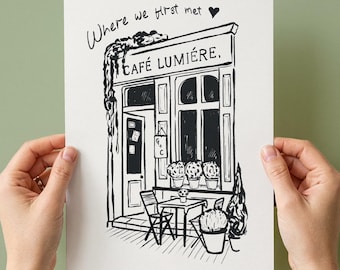 Where we first met ♥
CAFÉ LUMIÉRE.